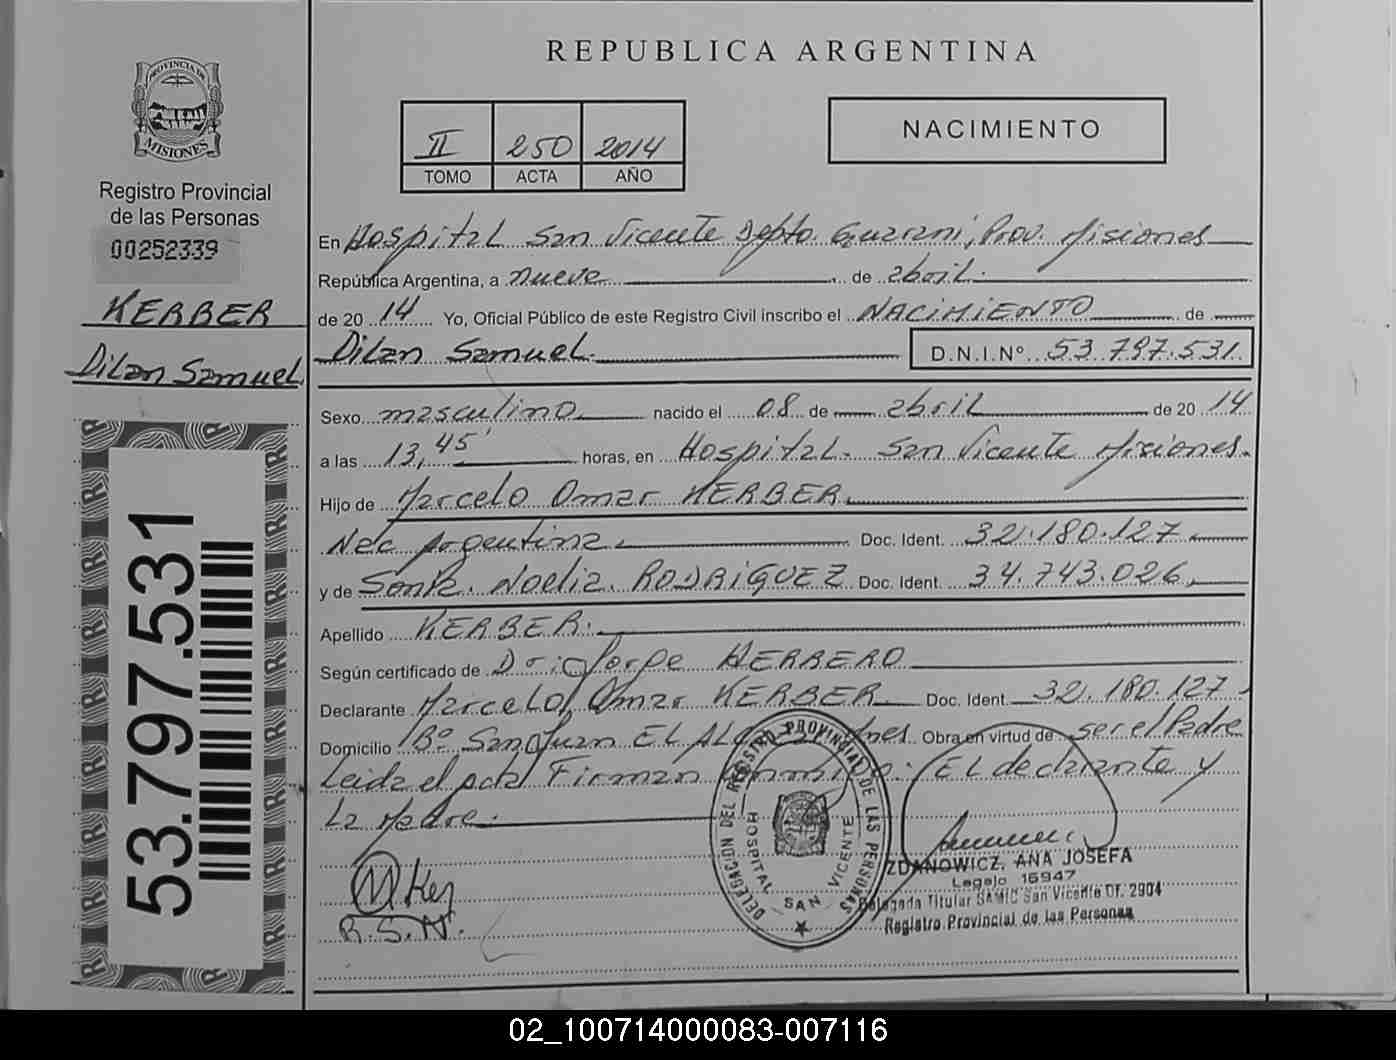 REPUBLICA ARGENTINA
PROVINCIA DE
MISIONES
Registro Provincial
de las Personas
00252339
KERBER
Dilan Samuel
53.797.531
II 250 2014
TOMO ACTA AÑO
NACIMIENTO
En Hospital San Vicente Depto. Guarani, Prov. Misiones
República Argentina, a nueve de abril.
de 20 14 Yo, Oficial Público de este Registro Civil inscribo el NACIMIENTO de
Dilan Samuel. D.N.I.Nº 53.797.531.
Sexo masculino nacido el 08 de abril de 20 14
a las 13,45' horas, en Hospital. San Vicente Misiones.
Hijo de Marcelo Omar KERBER.
Nac Argentina. Doc. Ident. 32.180.127
y de Sonia. Noelia. RODRIGUEZ Doc. Ident. 34.743.026
Apellido KERBER.
Según certificado de Dr. Jorge HERRERO
Declarante Marcelo Omar KERBER Doc. Ident. 32.180.127
Domicilio Bº San Juan EL Obra en virtud de ser el Padre
Leida el acta Firman conmigo: EL declarante y
La Madre.
M Ker
R.S.N.
DELEGACION DEL REGISTRO PROVINCIAL DE LAS PERSONAS
HOSPITAL SAN VICENTE
ZDANOWICZ, ANA JOSEFA
Legajo 15947
Delegada Titular SAMIC San Vicente Of. 2904
Registro Provincial de las Personas
02_100714000083-007116